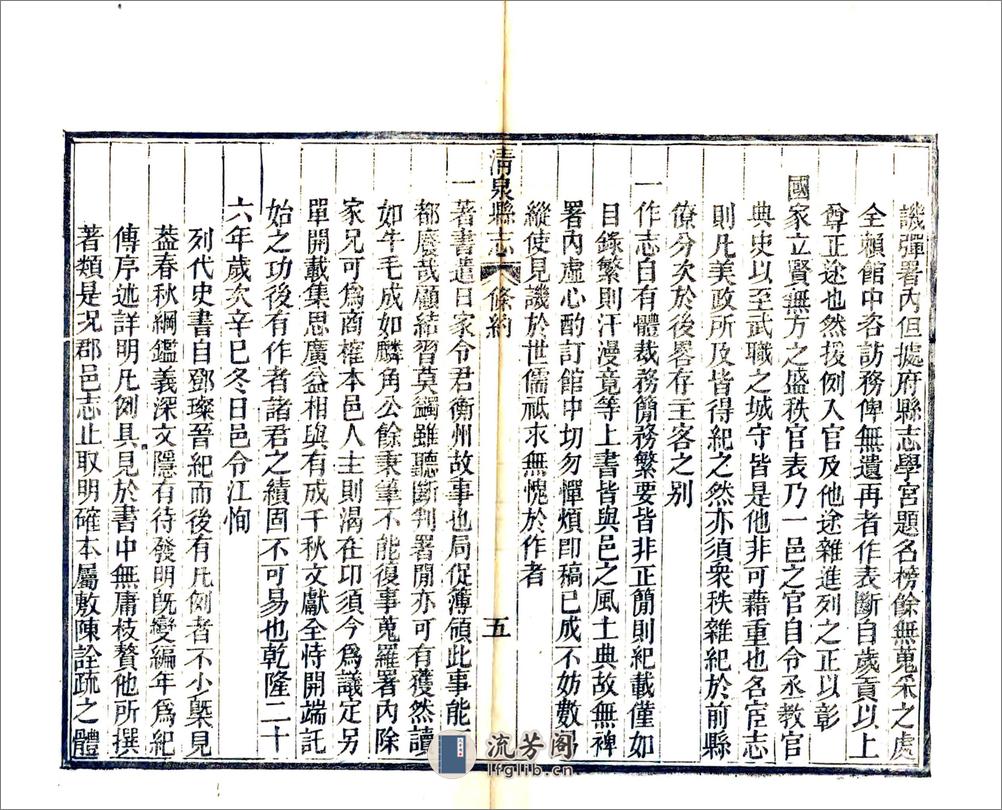 譏彈署內但據府縣志學宮題名榜餘無蒐采之處
全賴館中咨訪務俾無遺再者作表斷自歲貢以上
尊正途也然援例入官及他途雜進列之正以彰
國家立賢無方之盛秩官表乃一邑之官自令丞教官
典史以至武職之城守皆是他非可藉重也名宦志
則凡美政所及皆得紀之然亦須衆秩雜紀於前縣
僚分次於後畧存主客之别
一作志自有體裁務簡務繁要皆非正簡則紀載僅如
目錄繁則汗漫竟等上書皆與邑之風土典故無裨
署內虛心酌訂館中切勿憚煩即稿已成不妨數易
縱使見譏於世儒祗求無愧於作者
清泉縣志
條約
五
一著書遣日家令君衡州故事也局促簿領此事能
都廢哉顧結習莫蠲雖聽斷判署閒亦可有獲然讀
如牛毛成如麟角公餘秉筆不能復事蒐羅署內除
家兄可爲商榷本邑人士則渴在印須今爲議定另
單開載集思廣益相與有成千秋文獻全恃開端託
始之功後有作者諸君之績固不可易也乾隆二十
六年歲次辛巳冬日邑令江恂
列代史書自鄧璨晉紀而後有凡例者不少槩見
葢春秋綱鑑義深文隱有待發明旣變編年爲紀
傳序述詳明凡例具見於書中無庸枝贅他所撰
著類是况郡邑志止取明確本屬敷陳詮疏之體
流芳阁
lfglib.cn